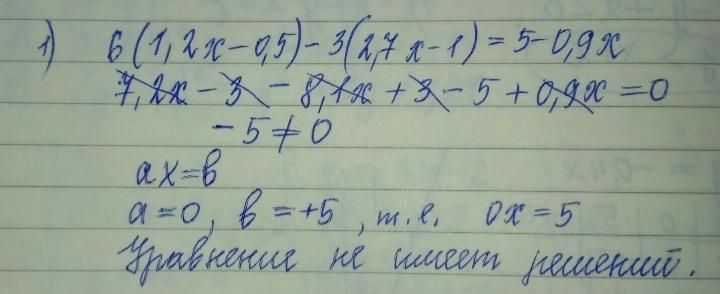 1) 6(1,2x-0,5)-3(2,7x-1)=5-0,9x
7,2x-3-8,1x+3-5+0,9x=0
-5≠0
ax=b
a=0, b=+5, т.е. 0x=5
Уравнение не имеет решений.